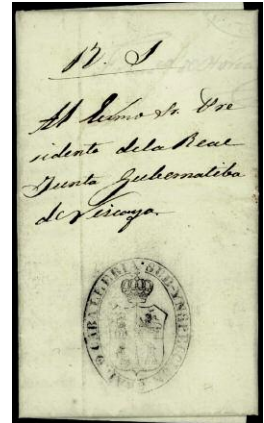 12. S
Al Exmo Sr. Pre
sidente dela Real
Junta Gubernatiba
de Vizcaya.
CABALLERIA SUB-YNSPECCION